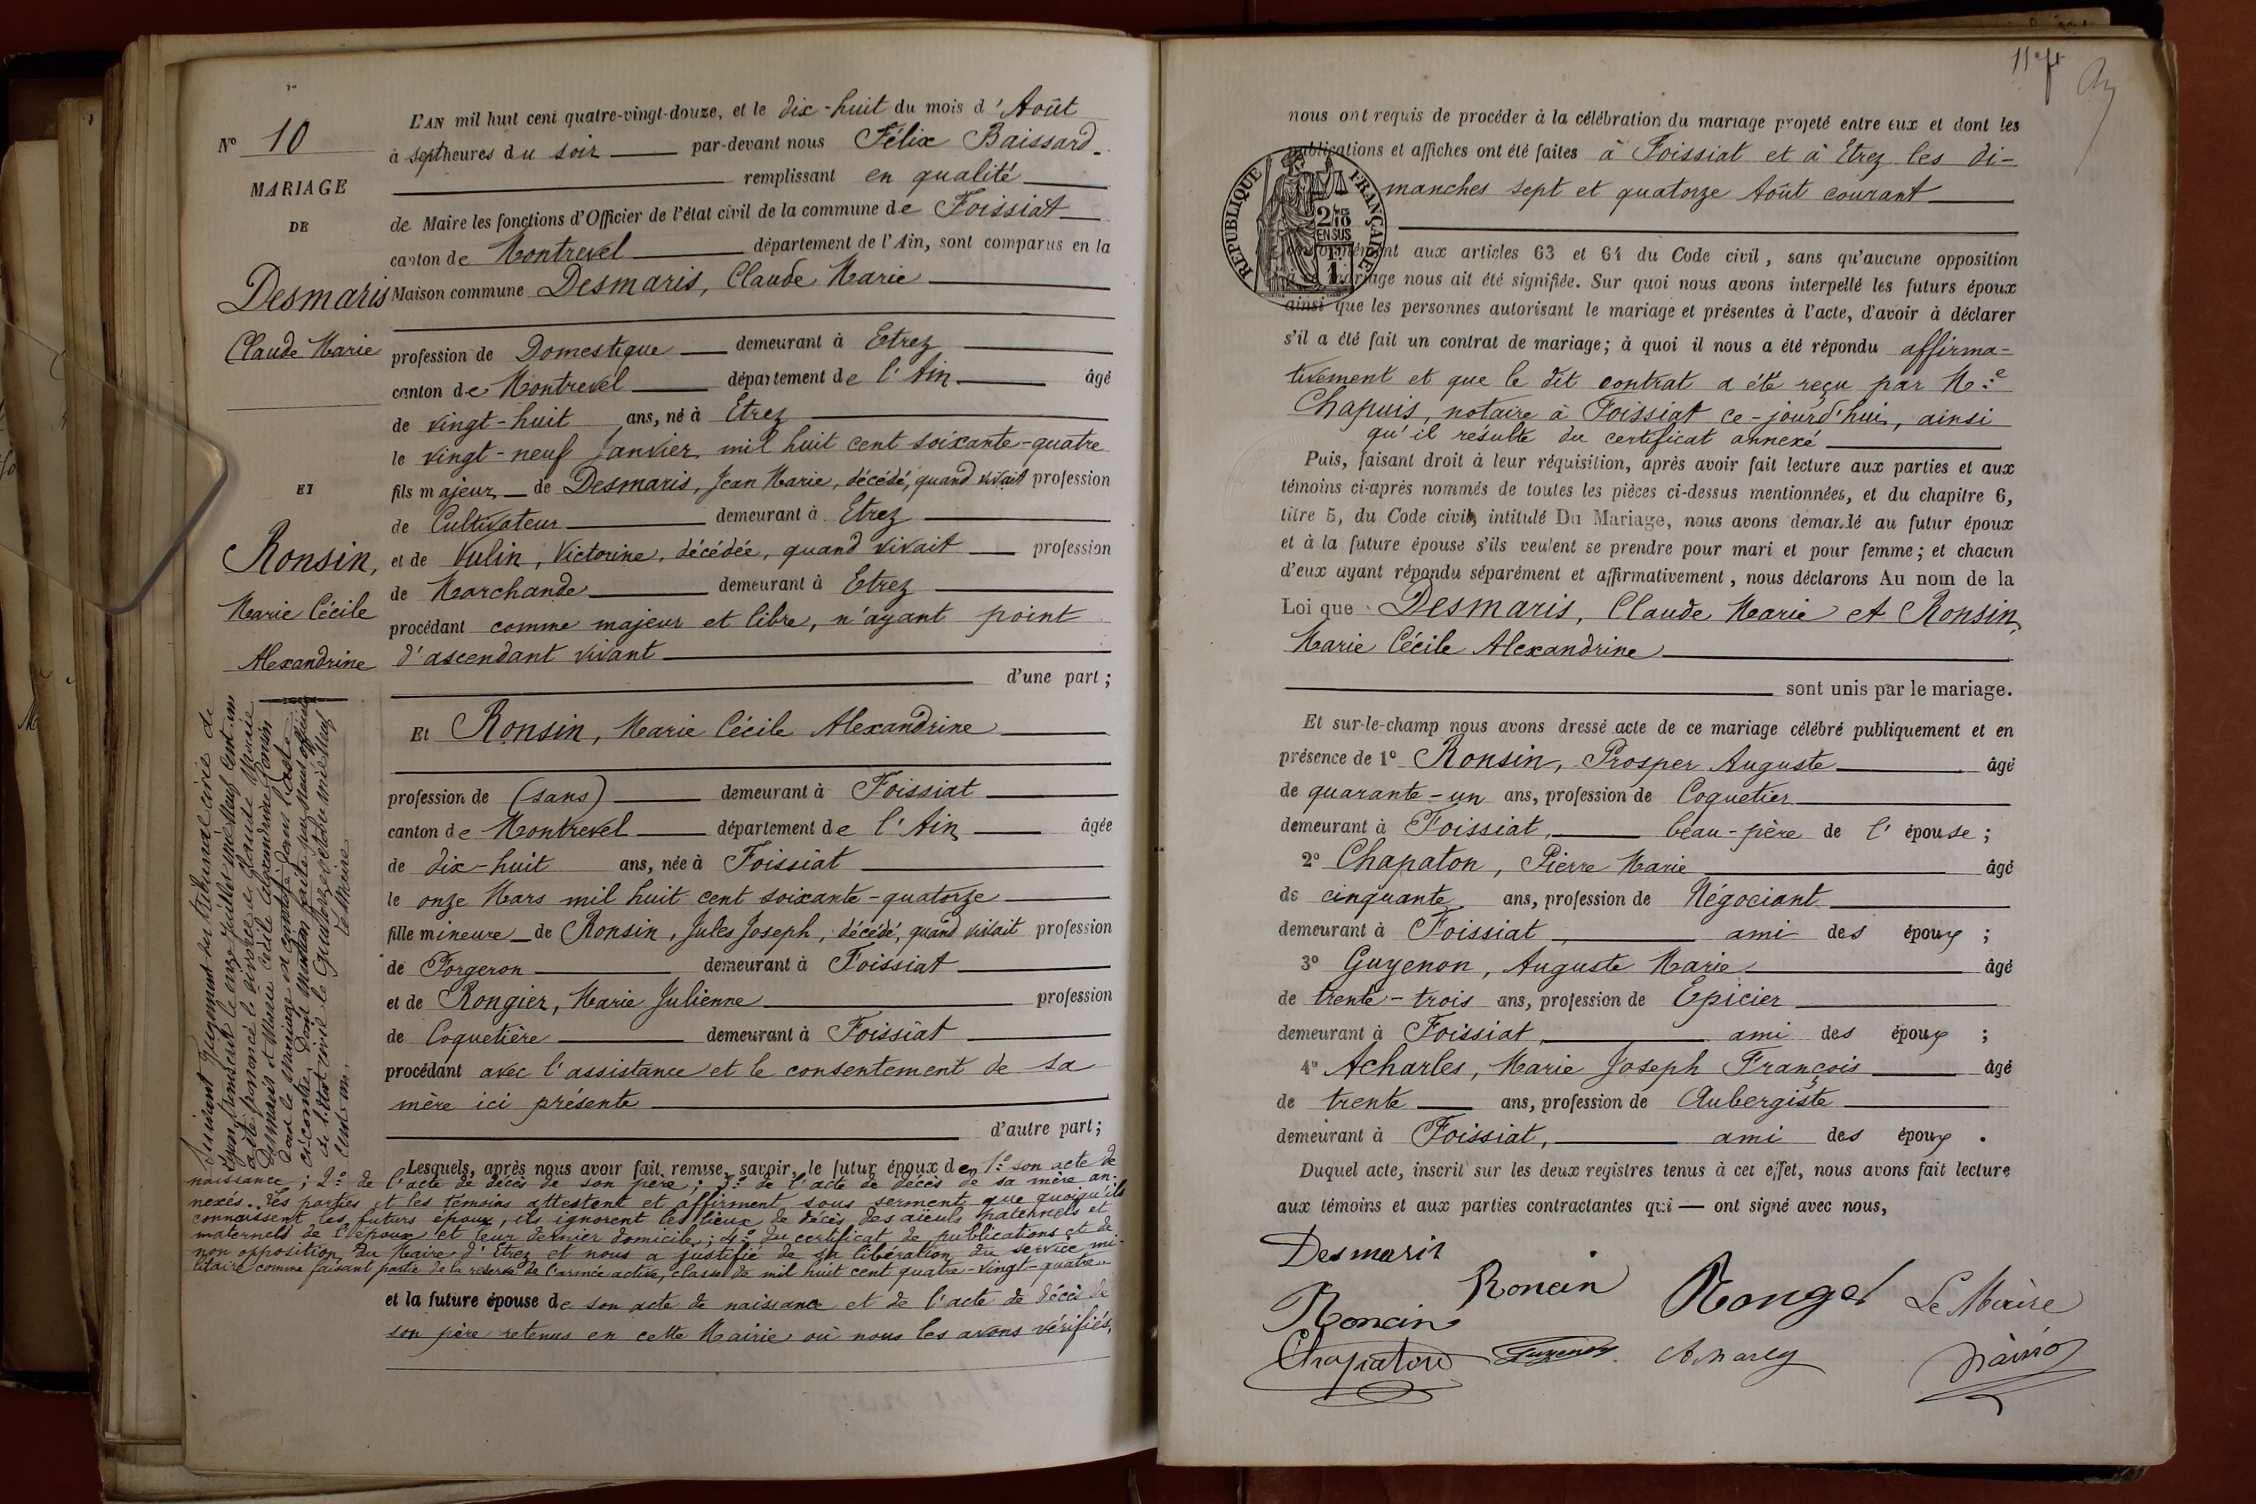 N° 10
MARIAGE
DE
Desmaris
Claude Marie
ET
Ronsin,
Marie Cécile
Alexandrine
Suivant jugement du tribunal civil de
Lyon, prononcé le onze Juillet mil neuf cent un
a été prononcé le divorce de Claude Marie
Desmaris et Marie Cécile Alexandrine Ronsin
dont le mariage est constaté dans l'acte
ci-contre, dont mention faite par nous officier
de l'état civil le quatorze octobre mil neuf
cent un. Le Maire
L'AN mil huit cent quatre-vingt-douze, et le dix-huit du mois d'Août
à sept heures du soir par-devant nous Félix Baissard
remplissant en qualité
de Maire les fonctions d'Officier de l'état civil de la commune de Foissiat
canton de Montrevel département de l'Ain, sont comparus en la
Maison commune Desmaris, Claude Marie
profession de Domestique demeurant à Etrez
canton de Montrevel département de l'Ain âgé
de vingt-huit ans, né à Etrez
le vingt-neuf Janvier mil huit cent soixante-quatre
fils majeur de Desmaris, Jean Marie, décédé, quand vivait profession
de Cultivateur demeurant à Etrez
et de Vulin, Victorine, décédée, quand vivait profession
de Marchande demeurant à Etrez
procédant comme majeur et libre, n'ayant point
d'ascendant vivant
d'une part ;
Et Ronsin, Marie Cécile Alexandrine
profession de (sans) demeurant à Foissiat
canton de Montrevel département de l'Ain âgée
de dix-huit ans, née à Foissiat
le onze Mars mil huit cent soixante-quatorze
fille mineure de Ronsin, Jules Joseph, décédé, quand vivait profession
de Forgeron demeurant à Foissiat
et de Rongier, Marie Julienne profession
de Coquetière demeurant à Foissiat
procédant avec l'assistance et le consentement de sa
mère ici présente
d'autre part ;
Lesquels, après nous avoir fait remise, savoir, le futur époux de 1° son acte de
naissance ; 2° de l'acte de décès de son père ; 3° de l'acte de décès de sa mère an-
nexés. Les parties et les témoins attestent et affirment sous serment que quoiqu'ils
connaissent les futurs époux, ils ignorent les lieux de décès des aïeuls paternels et
maternels de l'époux et leur dernier domicile ; 4° du certificat de publications et de
non opposition du Maire d'Etrez et nous a justifié de sa libération du service mi-
litaire comme faisant partie de la réserve de l'armée active, classe de mil huit cent quatre-vingt-quatre
et la future épouse de son acte de naissance et de l'acte de décès de
son père retenus en cette Mairie où nous les avons vérifiés,
11e ft
nous ont requis de procéder à la célébration du mariage projeté entre eux et dont les
publications et affiches ont été faites à Foissiat et à Etrez les di-
manches sept et quatorze Août courant
RÉPUBLIQUE FRANÇAISE
2/10 EN SUS
1F
conformément aux articles 63 et 64 du Code civil, sans qu'aucune opposition
au mariage nous ait été signifiée. Sur quoi nous avons interpellé les futurs époux
ainsi que les personnes autorisant le mariage et présentes à l'acte, d'avoir à déclarer
s'il a été fait un contrat de mariage ; à quoi il nous a été répondu affirma-
tivement et que le dit contrat a été reçu par Me
Chapuis, notaire à Foissiat ce-jourd'hui, ainsi
qu'il résulte du certificat annexé
Puis, faisant droit à leur réquisition, après avoir fait lecture aux parties et aux
témoins ci-après nommés de toutes les pièces ci-dessus mentionnées, et du chapitre 6,
titre 5, du Code civil, intitulé Du Mariage, nous avons demandé au futur époux
et à la future épouse s'ils veulent se prendre pour mari et pour femme ; et chacun
d'eux ayant répondu séparément et affirmativement, nous déclarons Au nom de la
Loi que Desmaris, Claude Marie et Ronsin,
Marie Cécile Alexandrine
sont unis par le mariage.
Et sur-le-champ nous avons dressé acte de ce mariage célébré publiquement et en
présence de 1° Ronsin, Prosper Auguste âgé
de quarante-un ans, profession de Coquetier
demeurant à Foissiat, beau-père de l'épouse ;
2° Chapaton, Pierre Marie âgé
de cinquante ans, profession de Négociant
demeurant à Foissiat, ami des époux ;
3° Guyenon, Auguste Marie âgé
de trente-trois ans, profession de Epicier
demeurant à Foissiat, ami des époux ;
4° Acharles, Marie Joseph François âgé
de trente ans, profession de Aubergiste
demeurant à Foissiat, ami des époux.
Duquel acte, inscrit sur les deux registres tenus à cet effet, nous avons fait lecture
aux témoins et aux parties contractantes qui ont signé avec nous,
Desmaris
Roncin Ronget Le Maire
Roncin
Chapaton Guyenon